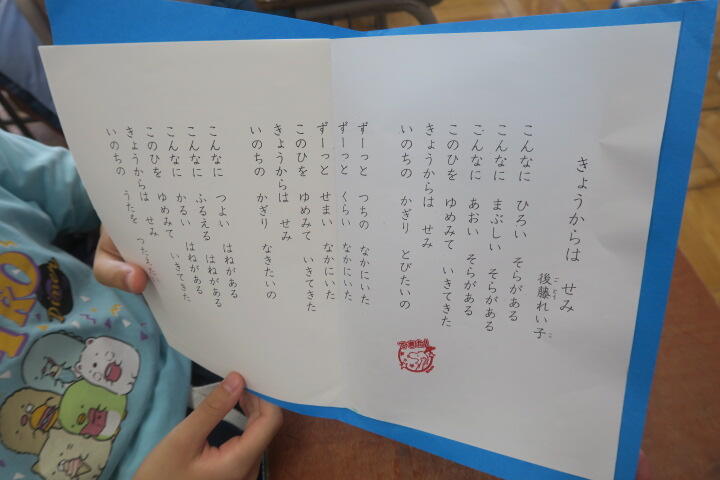 きょうからは　せみ
後藤れい子
ごとう　こ
こんなに　ひろい　そらがある
こんなに　まぶしい　そらがある
こんなに　あおい　そらがある
このひを　ゆめみて　いきてきた
きょうからは　せみ
いのちの　かぎり　とびたいの
ずーっと　つちの　なかにいた
ずーっと　くらい　なかにいた
ずーっと　せまい　なかにいた
このひを　ゆめみて　いきてきた
きょうからは　せみ
いのちの　かぎり　なきたいの
こんなに　つよい　はねがある
こんなに　ふるえる　はねがある
こんなに　かるい　はねがある
このひを　ゆめみて　いきてきた
きょうからは　せみ
いのちの　うたを